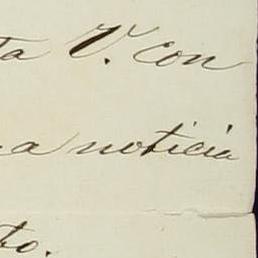 ta V. con
na noticia
to.